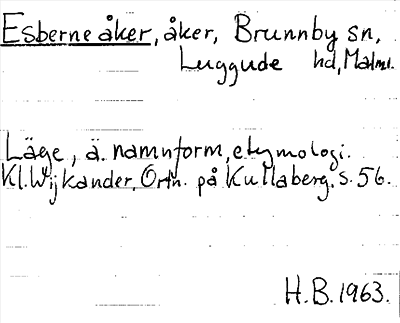 Esberne åker, åker, Brunnby sn,
Luggude hd, Malml.
Läge, ä. namnform, etymologi.
Kl. Wijkander, Ortn. på Kullaberg, s. 56.
H.B. 1963.